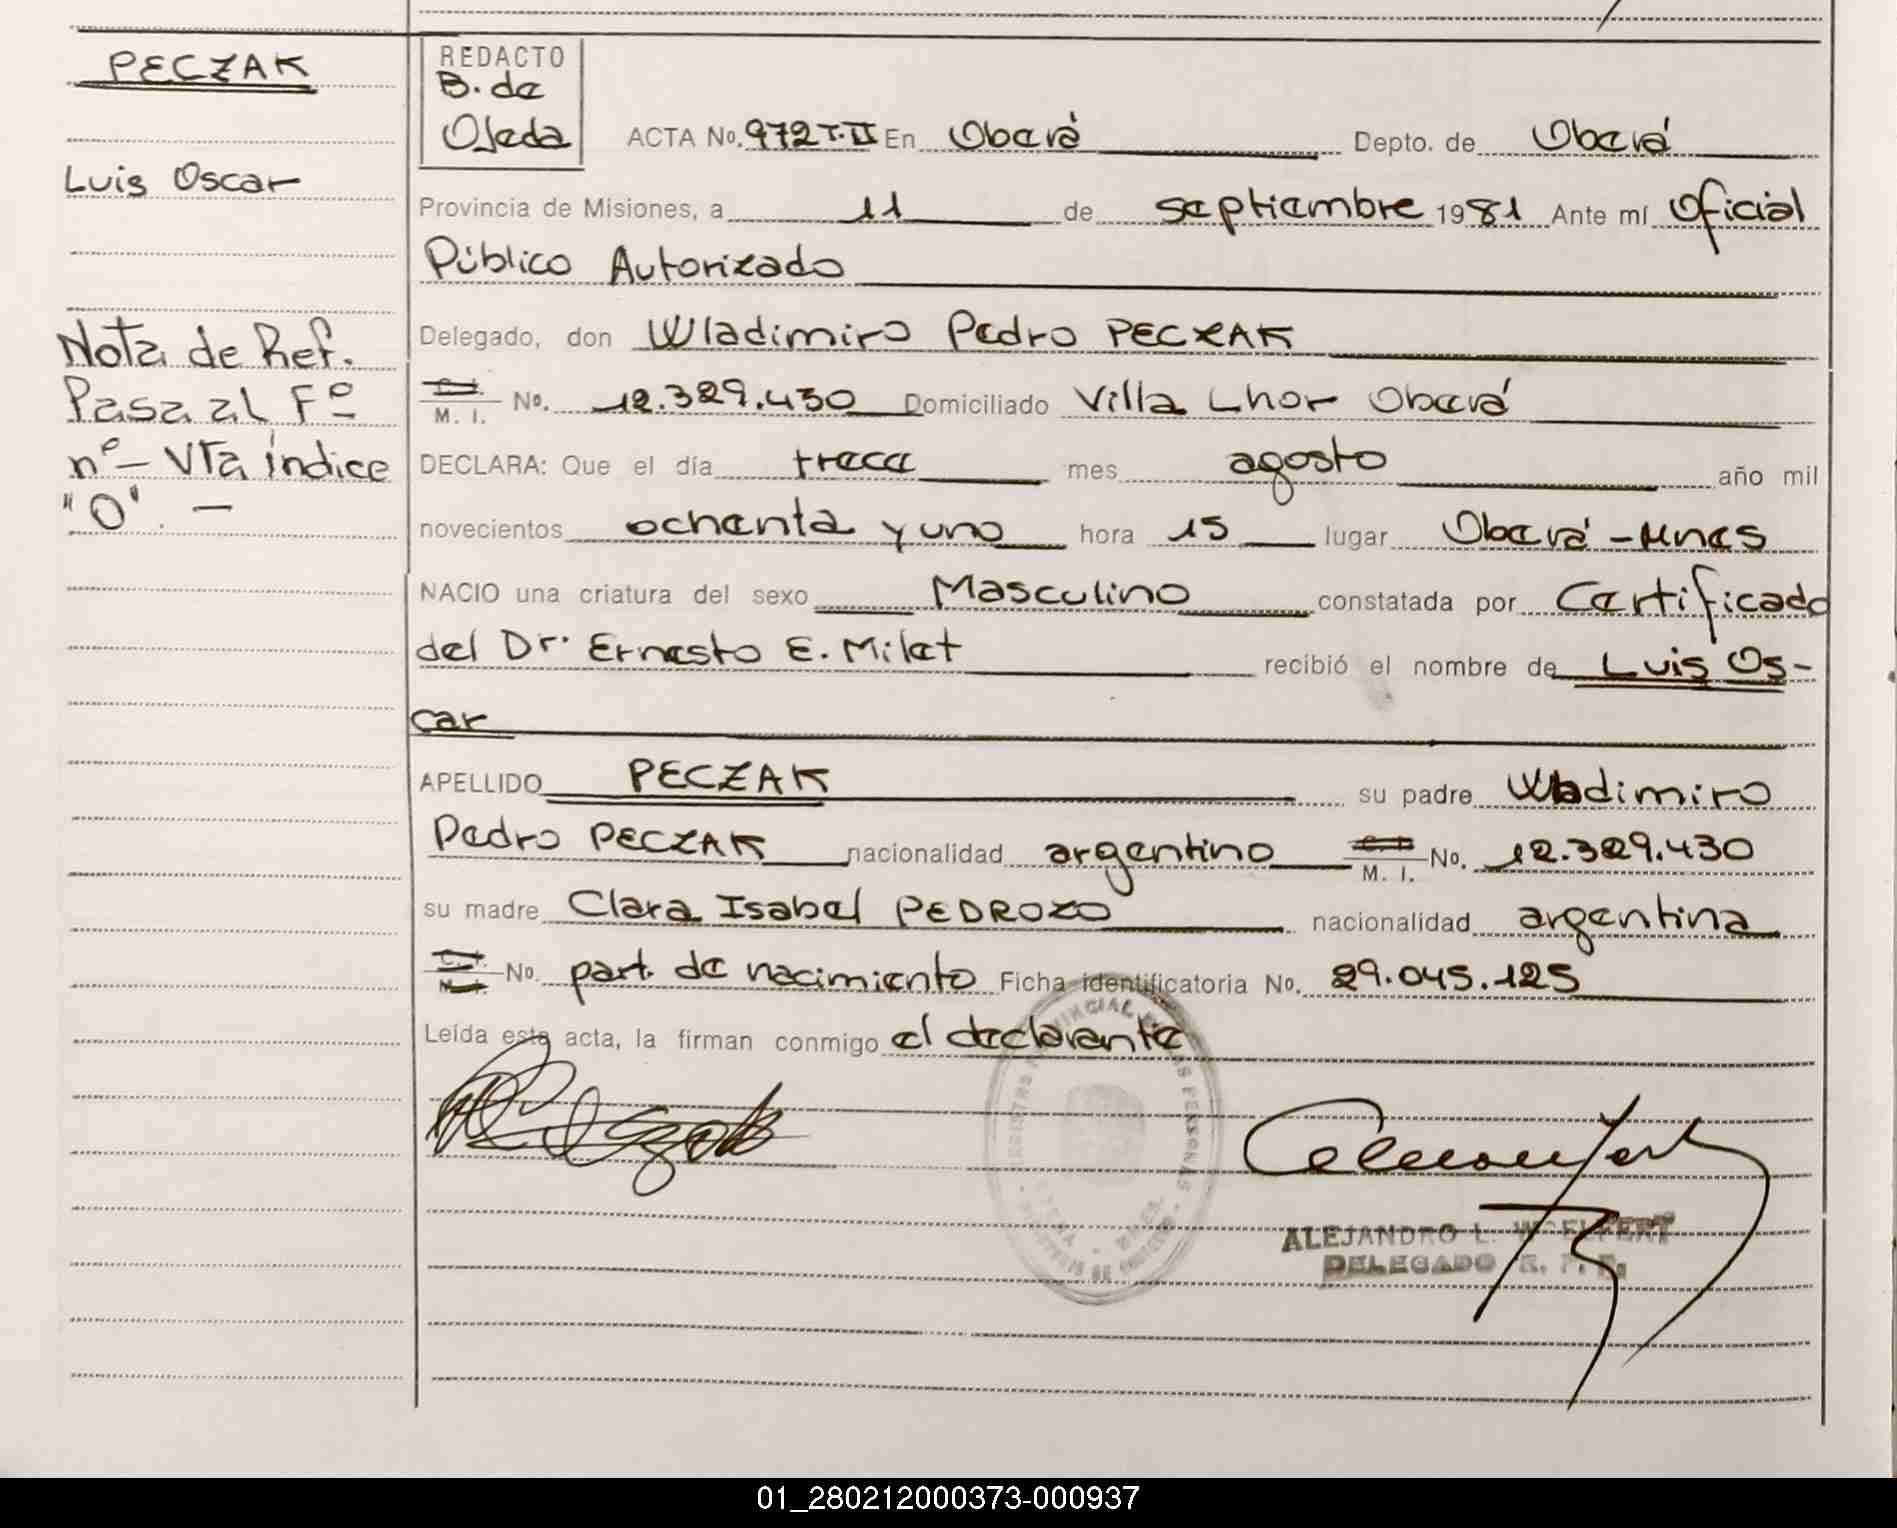 PECZAK
Luis Oscar
Nota de Ref.
Pasa al Fº
nº - Vta índice
"O". -
REDACTO
B. de
Ojeda
ACTA No. 972 T.II En Oberá Depto. de Oberá
Provincia de Misiones, a 11 de septiembre 1981 Ante mí Oficial
Público Autorizado
Delegado, don Wladimiro Pedro PECZAK
C. I.
M. I. No. 12.329.430 Domiciliado Villa Lhor Oberá
DECLARA: Que el día trece mes agosto año mil
novecientos ochenta y uno hora 15 lugar Oberá - Mnes
NACIO una criatura del sexo Masculino constatada por Certificado
del Dr. Ernesto E. Milet recibió el nombre de Luis Os-
car
APELLIDO PECZAK su padre Wladimiro
Pedro PECZAK nacionalidad argentino C. I. M. I. No. 12.329.430
su madre Clara Isabel PEDROZO nacionalidad argentina
C. I. M. I. No. part. de nacimiento Ficha identificatoria No. 29.045.125
Leída esta acta, la firman conmigo el declarante
ALEJANDRO L.
DELEGADO R. P. P.
01_280212000373-000937